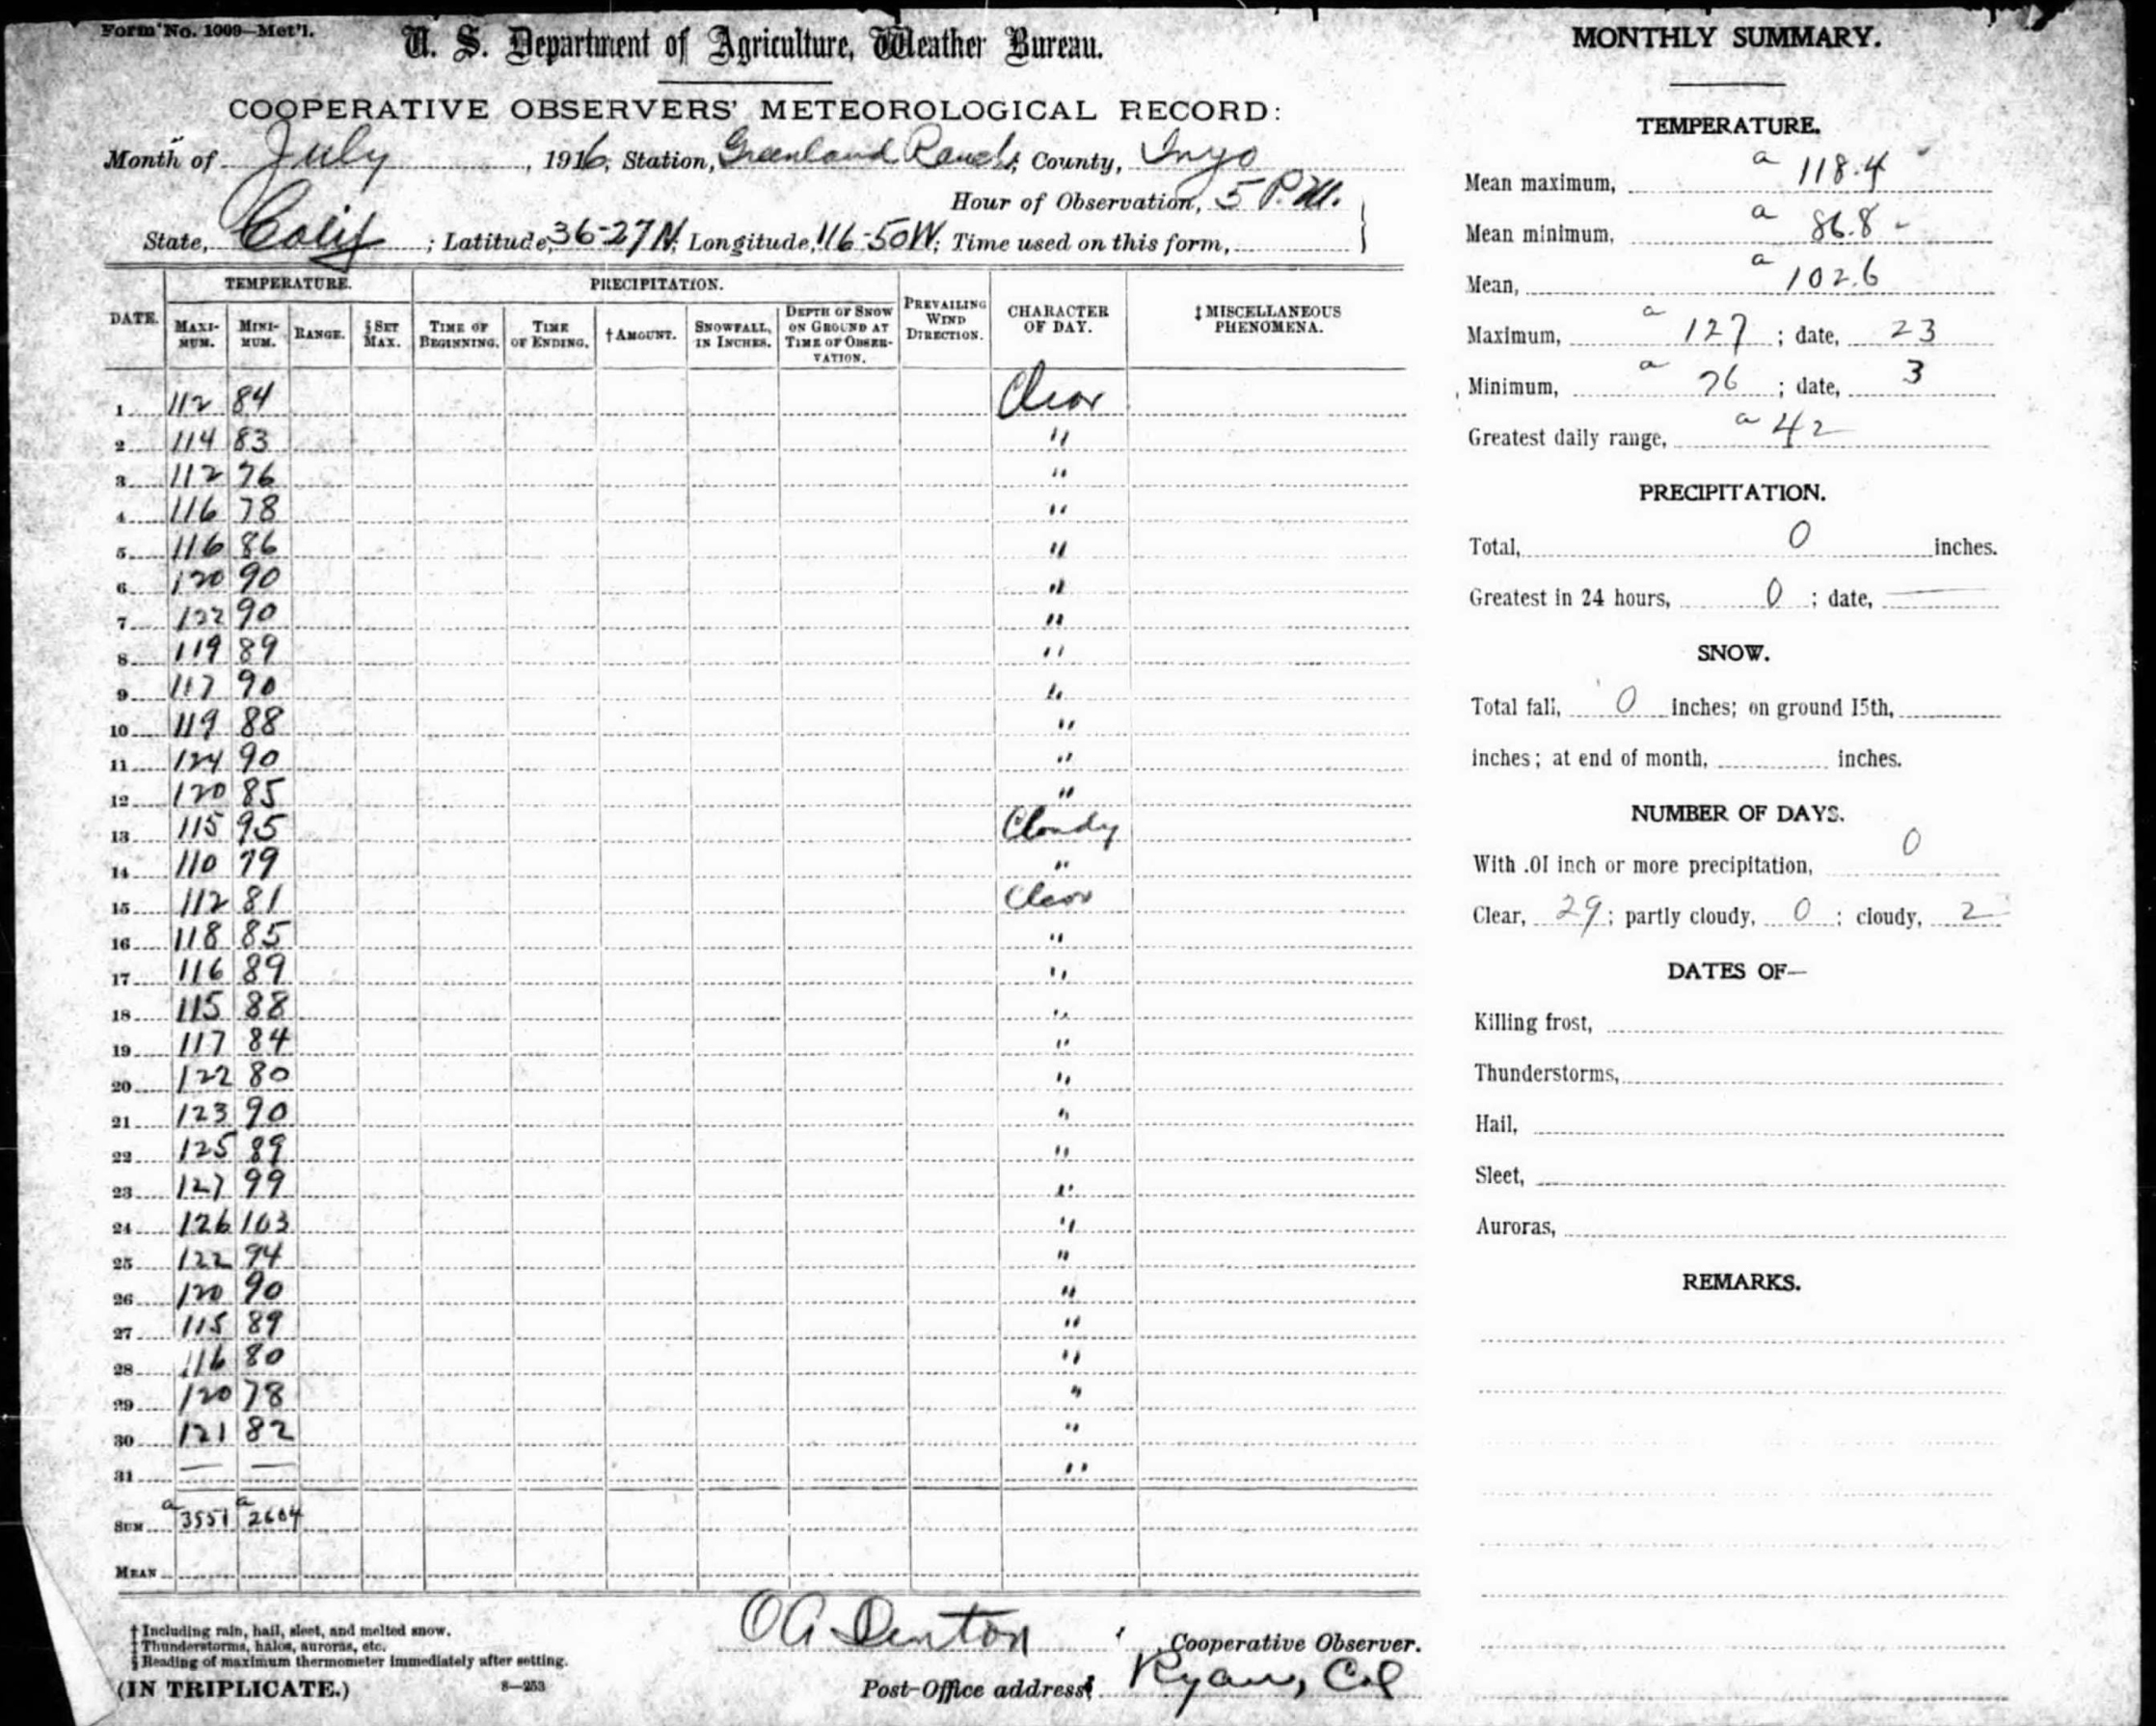 Form No. 1009—Met'l.
U. S. Department of Agriculture, Weather Bureau.
COOPERATIVE OBSERVERS' METEOROLOGICAL RECORD:
Month of July, 1916, Station, Greenland Ranch, County, Inyo
Hour of Observation, 5 P.M.
State, Calif; Latitude, 36-27N; Longitude, 116-50W; Time used on this form,
DATE. TEMPERATURE. PRECIPITATION. PREVAILING WIND DIRECTION. CHARACTER OF DAY. ‡ MISCELLANEOUS PHENOMENA.
MAXIMUM. MINIMUM. RANGE. § SET MAX. TIME OF BEGINNING. TIME OF ENDING. † AMOUNT. SNOWFALL, IN INCHES. DEPTH OF SNOW ON GROUND AT TIME OF OBSERVATION.
1 112 84 Clear
2 114 83 "
3 112 76 "
4 116 78 "
5 116 86 "
6 120 90 "
7 122 90 "
8 119 89 "
9 117 90 "
10 119 88 "
11 124 90 "
12 120 85 "
13 115 95 Cloudy
14 110 79 "
15 112 81 Clear
16 118 85 "
17 116 89 "
18 115 88 "
19 117 84 "
20 122 80 "
21 123 90 "
22 125 89 "
23 127 99 "
24 126 103 "
25 122 94 "
26 120 90 "
27 115 89 "
28 116 80 "
29 120 78 "
30 121 82 "
31 — — "
SUM a 3551 a 2604
MEAN
† Including rain, hail, sleet, and melted snow.
‡ Thunderstorms, halos, auroras, etc.
§ Reading of maximum thermometer immediately after setting.
(IN TRIPLICATE.) 8—253
OA Denton Cooperative Observer.
Post-Office address, Ryan, Cal
MONTHLY SUMMARY.
TEMPERATURE.
Mean maximum, a 118.4
Mean minimum, a 86.8
Mean, a 102.6
Maximum, a 127; date, 23
Minimum, a 76; date, 3
Greatest daily range, a 42
PRECIPITATION.
Total, 0 inches.
Greatest in 24 hours, 0; date, —
SNOW.
Total fall, 0 inches; on ground 15th,
inches; at end of month, inches.
NUMBER OF DAYS.
With .01 inch or more precipitation, 0
Clear, 29; partly cloudy, 0; cloudy, 2
DATES OF—
Killing frost,
Thunderstorms,
Hail,
Sleet,
Auroras,
REMARKS.